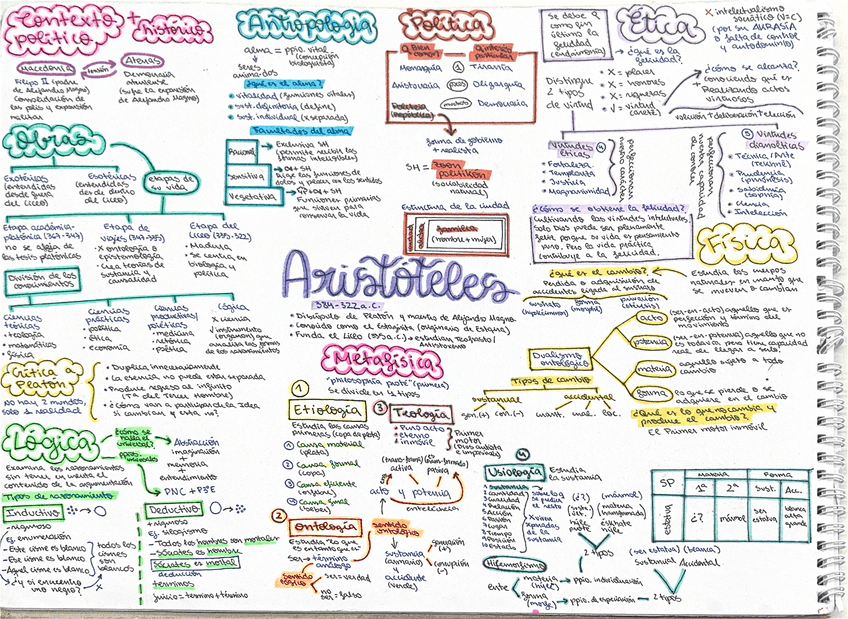 Contexto + histórico
político
Macedonia
tensión
Atenas
Filipo II (padre
de Alejandro Magno)
Consolidación de
las polis y expansión
militar
Democracia
ateniense
(sufre la expansión
de Alejandro Magno)
Obras
Exotéricas
(entendidas
desde fuera
del Liceo)
Esotéricas
(entendidas
desde dentro
del Liceo)
etapas de
su vida
Etapa académica-
platónica (367-347)
no se aleja de
las tesis platónicas
Etapa de
viajes (347-335)
X ontología y
epistemología
Crea teorías de
sustancia y
causalidad
Etapa del
Liceo (335-322)
Madura
Se centra en
biología y
política
División de los
conocimientos
Ciencias
teóricas
teología
matemáticas
física
Ciencias
prácticas
política
ética
economía
Ciencias
productivas/
poiéticas
medicina
retórica
poética
Lógica
X ciencia
√ instrumento
(organon) que
analiza las formas
de los razonamientos
Crítica a
Platón
No hay 2 mundos,
solo 1 realidad
Duplica innecesariamente
La esencia no puede estar separada
Produce regreso al infinito
(Tª del Tercer Hombre)
¿Cómo van a participar de la Idea
si cambian y esta no?
Lógica
¿cómo se
halla el
universal?
Abstracción
imaginación
+
memoria
+
entendimiento
PNC + P3E
Examina los razonamientos
sin tener en cuenta su
contenido
Tipos de razonamiento
Inductivo
- riguroso
Ej: enumeración
- Este cisne es blanco
- Ese cisne es blanco
- Aquel cisne es blanco
todos los
cisnes
son
blancos
¿y si encuentro
uno negro?
Deductivo
+ riguroso
Ej: silogismo
- Todos los hombres son mortales
- Sócrates es hombre
Sócrates es mortal
deducción
términos
juicio = término + término
Antropología
alma = ppio. vital
(concepción
biologista)
seres
animados
¿Qué es el alma?
vitalidad (funciones vitales)
sust. definitoria (define)
sust. individual (x separada)
Facultades del alma
Racional
Sensitiva
Vegetativa
Exclusiva SH
(permite recibir las
formas inteligibles)
Rige las funciones de
dolor y placer, en los sentidos
Funciones primarias
que sirven para
conservar la vida
Política
Bien común
interés particular
Monarquía
1
Tiranía
Aristocracia
pocos
Oligarquía
muchos
Democracia
forma de gobierno
+ realista
SH = zoon
politikón
(sociabilidad
natural)
Estructura de la ciudad
ciudad
aldea
familia
(hombre + mujer)
Aristóteles
384-322 a.C.
Discípulo de Platón y maestro de Alejandro Magno
Conocido como el Estagirita (originario de Estagira)
Metafísica
"philosophia proté" (primera)
Se divide en 4 tipos
1
Etiología
Estudia las causas
primeras (copa de plata)
1 Causa material
(plata)
2 Causa formal
(copa)
3 Causa eficiente
(orfebre)
4 Causa final
(beber)
3 Teología
Puro acto
eterno
inmóvil
Primer
motor
activa
pasiva
acto y potencia
entelequia
2
Ontología
Estudia "lo que
es en tanto que es"
Ser → término
análogo
sentido
ontológico
sentido
lógico
ser = verdad
no
ser = falso
sustancia
(armario)
y
accidente
(verde)
generación (+)
corrupción (-)
4
Usiología
Estudia
la sustancia
1 sustancia
2 Cantidad
3 Cualidad
4 Relación
5 Acción
6 Pasión
7 Lugar
8 Tiempo
9 Posición
10 Estado
2 tipos
Hilemorfismo
ente
materia
(hyle)
ppio. individuación
forma
(morfé)
ppio. de especiación
2 tipos
SP
materia
Forma
1ª
2ª
Sust.
Acc.
estatua
¿?
mármol
ser
estatua
blanca
alta
grande
(ser estatua) (blanca)
Sustancial Accidental
Ética
se debe a
como fin
último la
felicidad
(eudaimonía)
X intelectualismo
socrático (V=C)
(por su AKRASIA
o falta de control
y autodominio)
¿qué es la
felicidad?
X = placer
X = honores
X = riquezas
√ = virtud
¿Cómo se alcanza?
conociendo qué es +
Realizando actos
virtuosos
volición + deliberación + elección
Distingue
2 tipos
de virtud
Virtudes
éticas
Fortaleza
Templanza
Justicia
Magnanimidad
Virtudes
dianoéticas
Técnica/Arte
(tecné)
Prudencia
(phrónesis)
Sabiduría
(sophía)
Ciencia
Intelección
¿Cómo se obtiene la felicidad?
Cultivando las virtudes intelectuales,
solo Dios puede ser plenamente
feliz porque su vida es pensamiento
puro. Pero la vida práctica
contribuye a la felicidad.
Física
Estudia los cuerpos
naturales en cuanto que
se mueven o cambian
¿Qué es el cambio?
Pérdida o adquisición de
accidentes ligada al sustrato
Dualismo
ontológico
acto
(ser-en-acto) aquello que es
perfección y término del
movimiento
potencia
(ser-en-potencia) aquello que no
es todavía pero tiene capacidad
real de llegar a serlo.
materia
aquello sujeto a todo
cambio
forma
lo que se pierde o se
adquiere en el cambio
Tipos de cambio
sustancial
gen.(+) corr.(-)
accidental
cuant. cual. loc.
¿Qué es lo que no cambia y
produce el cambio?
El Primer motor inmóvil